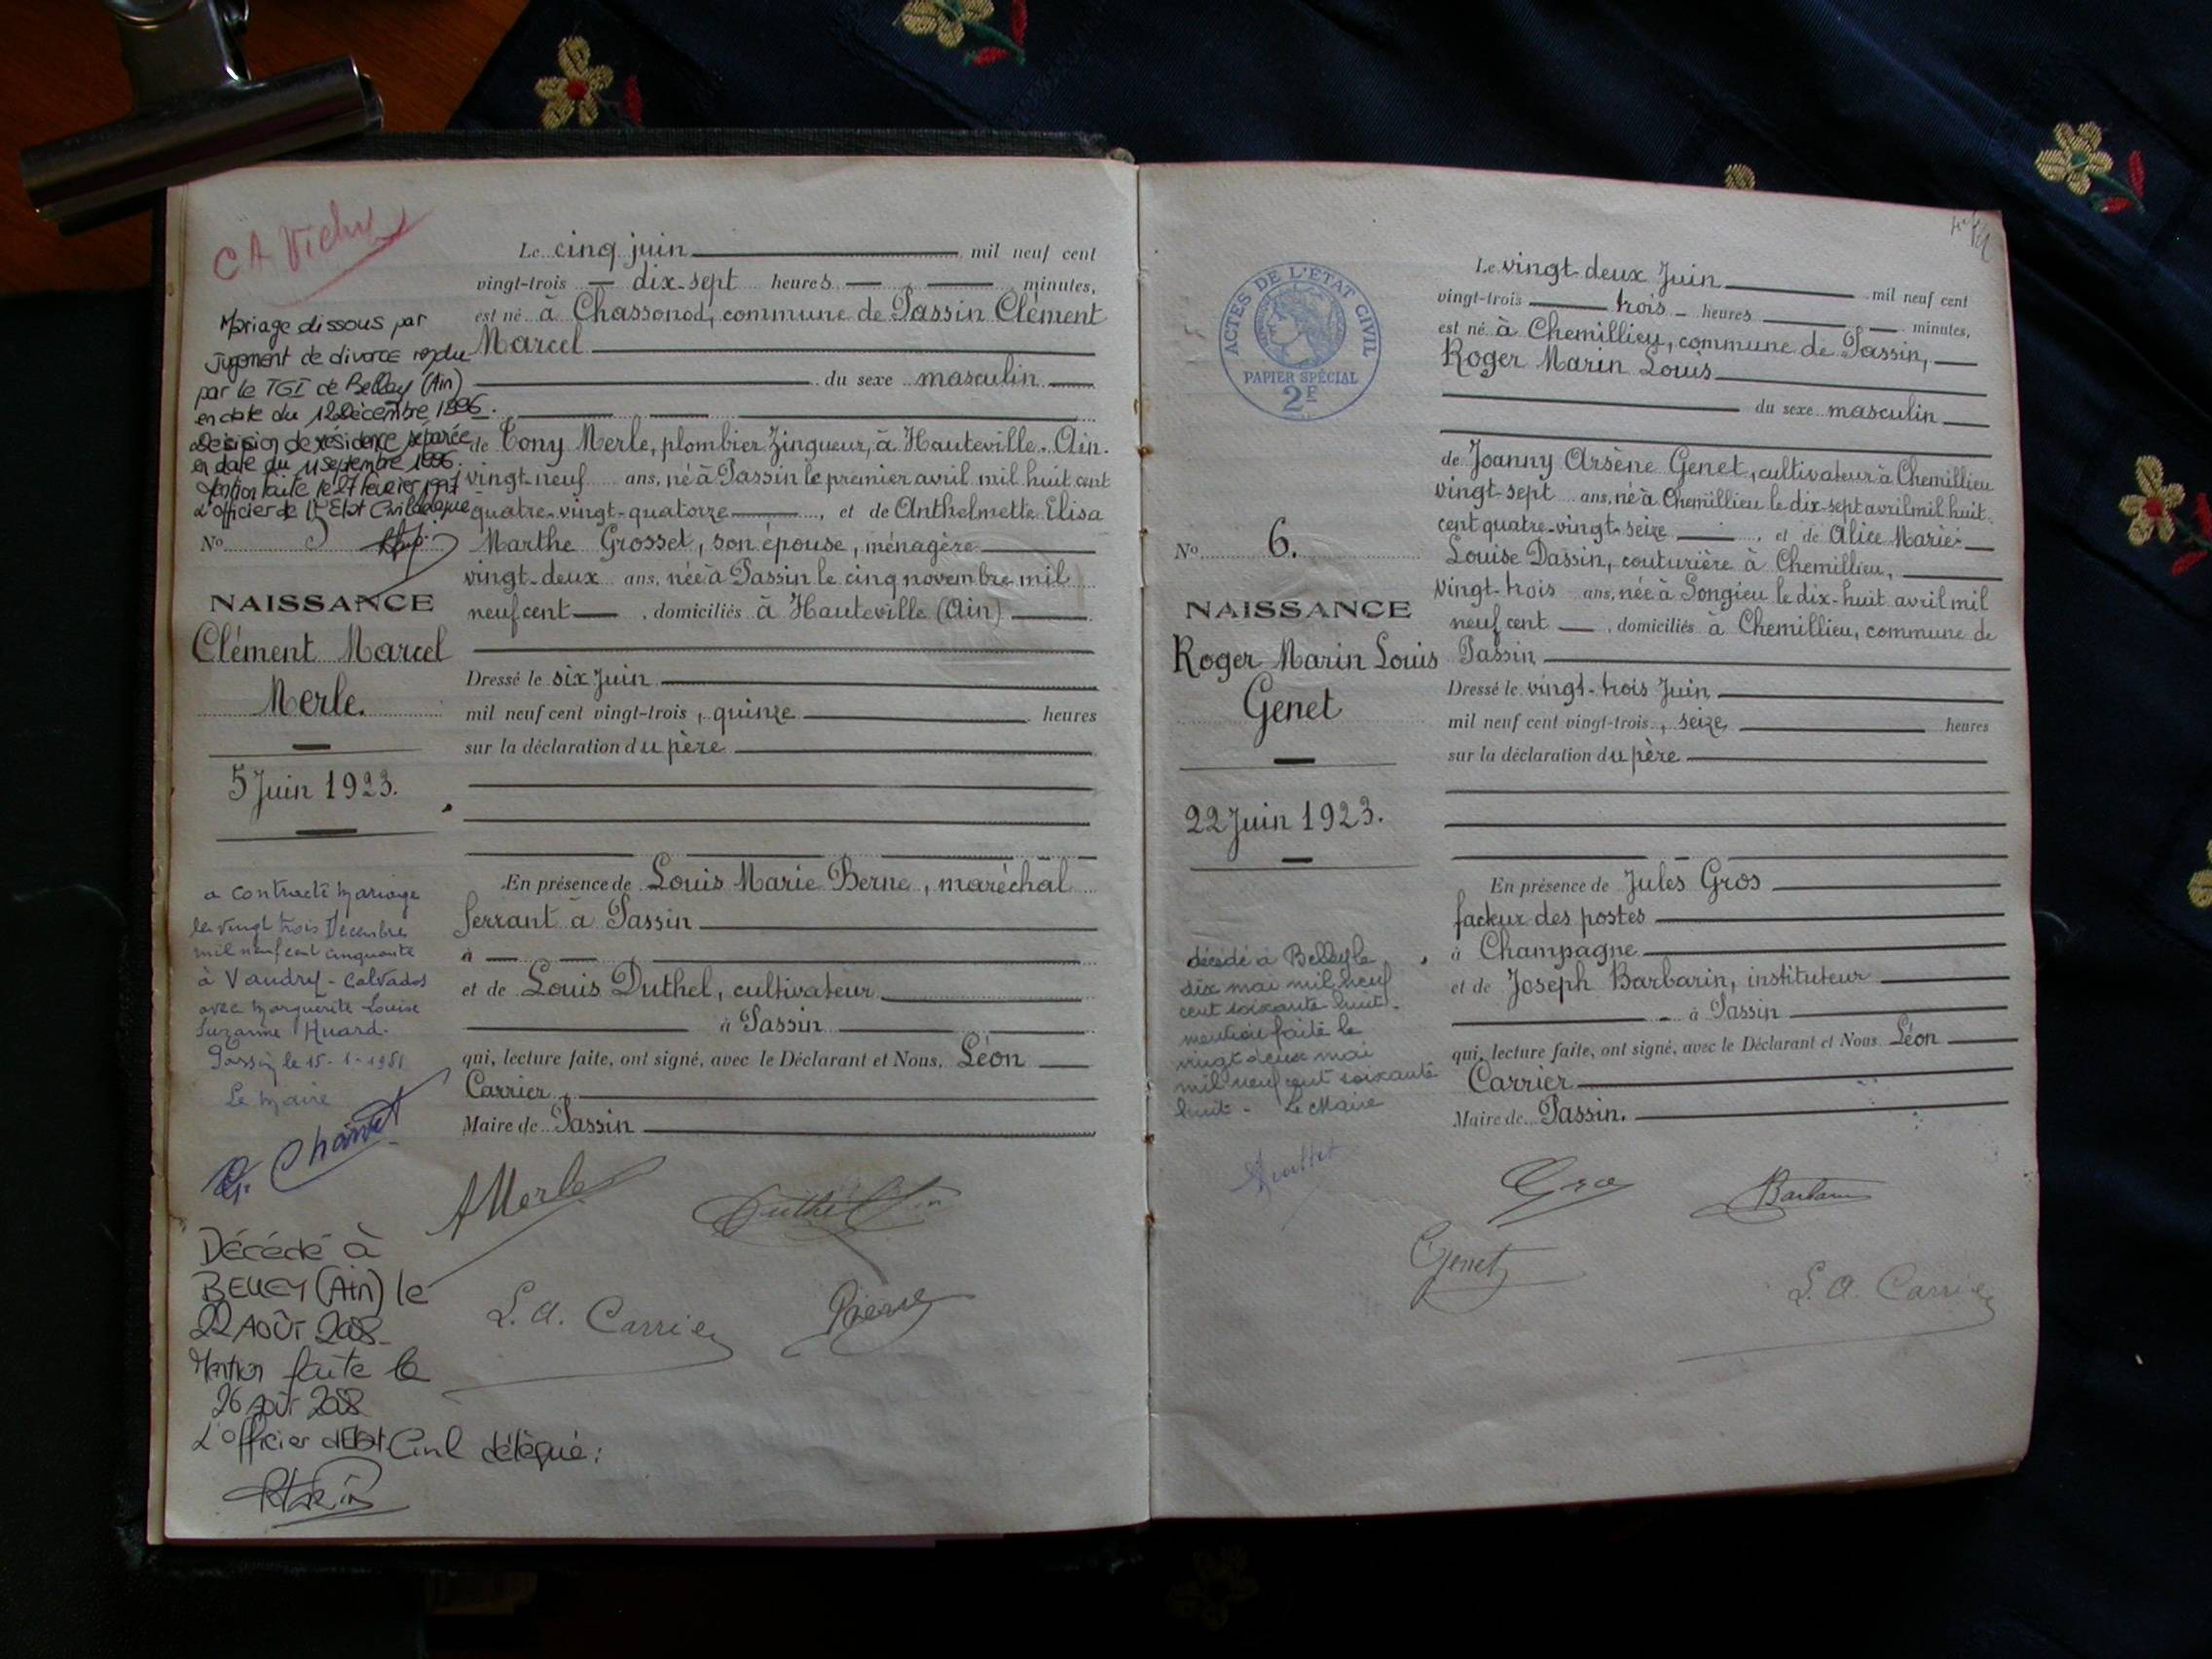 CA Vichy
Mariage dissous par
Jugement de divorce rendu
par le TGI de Belley (Ain)
en date du 12 Décembre 1996.
décision de résidence séparée
en date du 11 Septembre 1996.
Mention faite le 27 février 1997
L'officier de l'Etat Civil délégué
N° 5
NAISSANCE
Clément Marcel
Merle.
5 Juin 1923.
a contracté mariage
le vingt trois Décembre
mil neuf cent cinquante
à Vaudry - Calvados
avec Marguerite Louise
Suzanne Huard.
Passin le 15-1-1951
Le Maire
Décédé à
BELLEY (Ain) le
22 AOÛT 2008.
Mention faite le
26 août 2008
L'officier d'Etat Civil délégué :
Le cinq juin mil neuf cent
vingt-trois dix-sept heures minutes,
est né à Chassonod, commune de Passin Clément
Marcel
du sexe masculin
de Tony Merle, plombier Zingueur, à Hauteville. Ain.
vingt-neuf ans, né à Passin le premier avril mil huit cent
quatre-vingt-quatorze, et de Anthelmette Elisa
Marthe Grosset, son épouse, ménagère
vingt-deux ans, née à Passin le cinq novembre mil
neuf cent, domiciliés à Hauteville (Ain)
Dressé le six Juin
mil neuf cent vingt-trois, quinze heures
sur la déclaration du père
En présence de Louis Marie Berne, maréchal
ferrant à Passin
à
et de Louis Duthel, cultivateur
à Passin
qui, lecture faite, ont signé, avec le Déclarant et Nous, Léon
Carrier,
Maire de Passin
AMerle
L. A. Carrier
ACTES DE L'ÉTAT CIVIL
PAPIER SPÉCIAL
2F
N° 6.
NAISSANCE
Roger Marin Louis
Genet
22 Juin 1923.
décédé à Belley le
dix mai mil neuf
cent soixante huit.
mention faite le
vingt deux mai
mil neuf cent soixante
huit - Le Maire
Le vingt-deux Juin mil neuf cent
vingt-trois trois heures minutes,
est né à Chemillieu, commune de Passin,
Roger Marin Louis
du sexe masculin
de Joanny Arsène Genet, cultivateur à Chemillieu
vingt-sept ans, né à Chemillieu le dix-sept avril mil huit
cent quatre-vingt-seize, et de Alice Marie
Louise Dassin, couturière à Chemillieu,
vingt-trois ans, née à Songieu le dix-huit avril mil
neuf cent, domiciliés à Chemillieu, commune de
Passin
Dressé le vingt-trois Juin
mil neuf cent vingt-trois, seize heures
sur la déclaration du père
En présence de Jules Gros
facteur des postes
à Champagne
et de Joseph Barbarin, instituteur
à Passin
qui, lecture faite, ont signé, avec le Déclarant et Nous Léon
Carrier
Maire de Passin.
Genet
L. A. Carrier